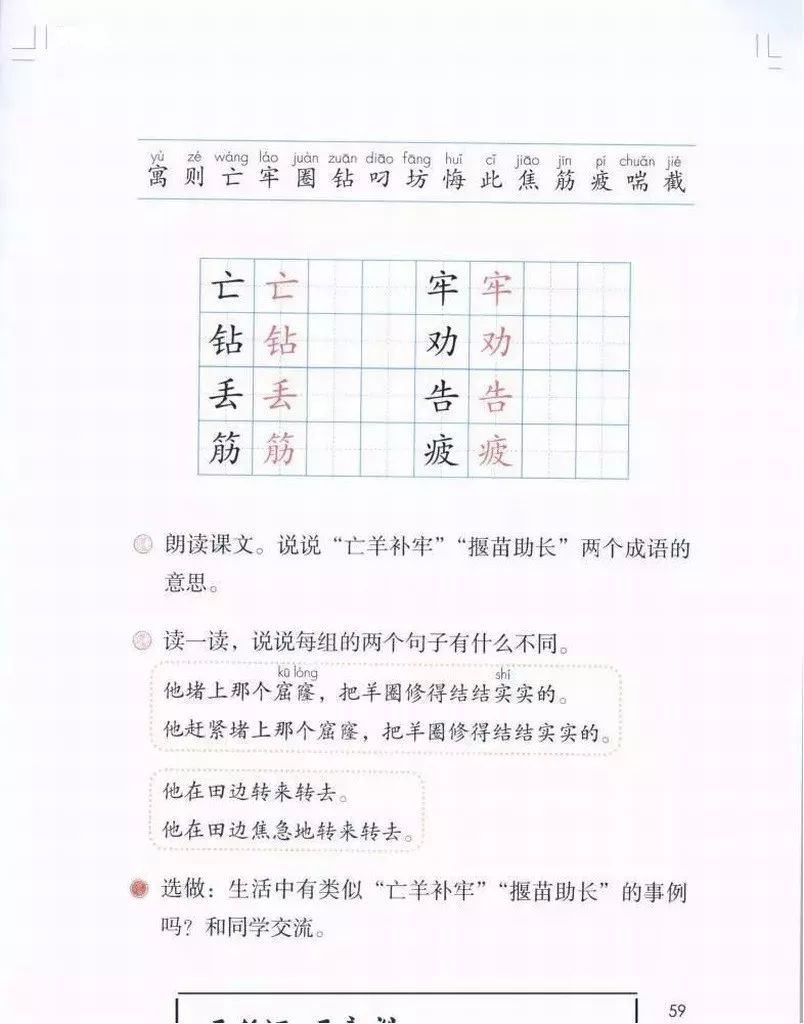 yù zé wáng láo juàn zuān diāo fāng huǐ cǐ jiāo jīn pí chuǎn jié
寓 则 亡 牢 圈 钻 叼 坊 悔 此 焦 筋 疲 喘 截
亡 亡 牢 牢
钻 钻 劝 劝
丢 丢 告 告
筋 筋 疲 疲
朗读课文。说说“亡羊补牢”“揠苗助长”两个成语的
意思。
读一读，说说每组的两个句子有什么不同。
kū lóng shí
他堵上那个窟窿，把羊圈修得结结实实的。
他赶紧堵上那个窟窿，把羊圈修得结结实实的。
他在田边转来转去。
他在田边焦急地转来转去。
选做：生活中有类似“亡羊补牢”“揠苗助长”的事例
吗？和同学交流。
59